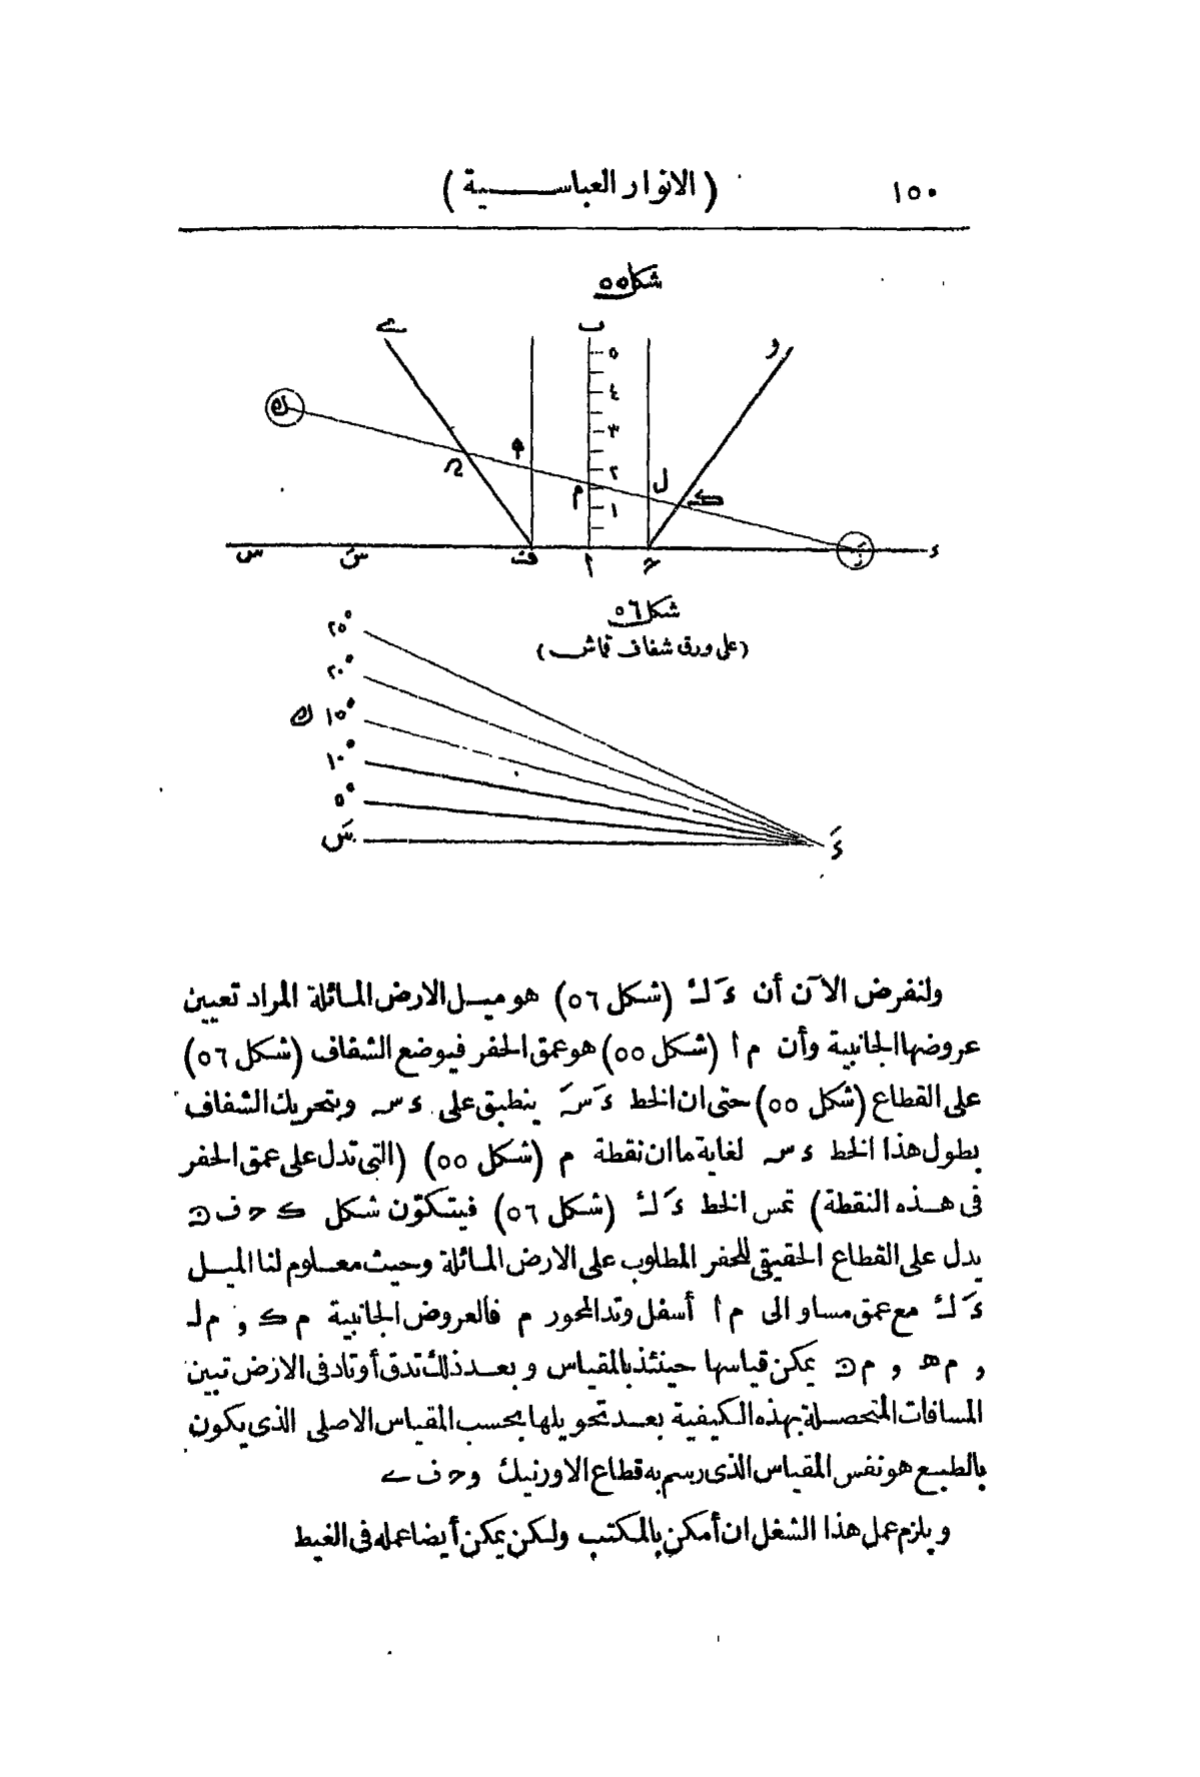 ١٥٠ (الانوار العباسية)
شكل ٥٥
ے ب و
٥
٤
٣
٢
١
ك ن ه م ل ک
س سَ ف ا ح زَ ء
شكل ٥٦
(على ورق شفاف قماش)
٢٥°
٢٠°
ك ١٥°
١٠°
٥°
سَ ءَ
ولنفرض الآن أن ءَ ك (شكل ٥٦) هو ميل الارض المائلة المراد تعيين
عروضها الجانبية وأن م أ (شكل ٥٥) هو عمق الحفر فيوضع الشفاف (شكل ٥٦)
على القطاع (شكل ٥٥) حتى ان الخط ءَ سَ ينطبق على ء س وبتحريك الشفاف
بطول هذا الخط ء س لغاية ما ان نقطة م (شكل ٥٥) (التى تدل على عمق الحفر
فى هذه النقطة) تمس الخط ءَ ك (شكل ٥٦) فيتكوّن شكل ک ح ف ن
يدل على القطاع الحقيقى للحفر المطلوب على الارض المائلة وحيث معلوم لنا الميل
ءَ ك مع عمق مساو الى م أ أسفل وتد المحور م فالعروض الجانبية م ک و م ل
و م ه و م ن يمكن قياسها حينئذ بالمقياس وبعد ذلك تدق أوتاد فى الارض تبين
المسافات المتحصلة بهذه الكيفية بعد تحويلها بحسب المقياس الاصلى الذى يكون
بالطبع هو نفس المقياس الذى رسم به قطاع الاورنيك و ح ف ے
ويلزم عمل هذا الشغل ان أمكن بالمكتب ولكن يمكن أيضا عمله فى الغيط